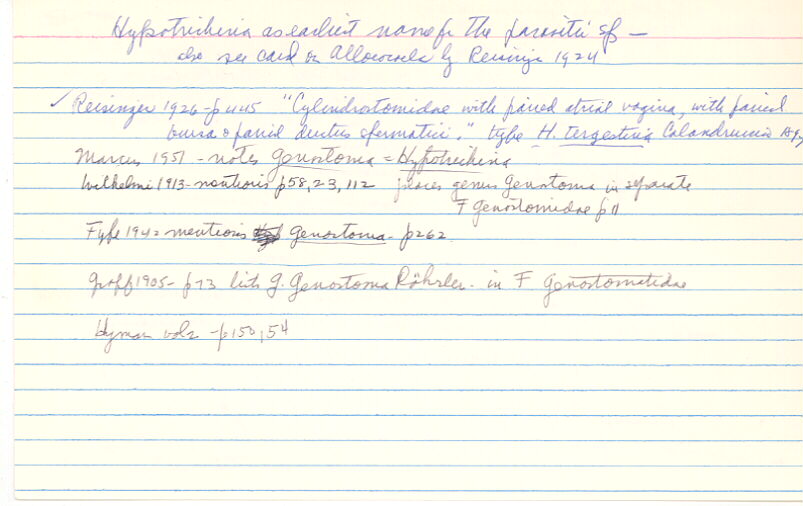 Hypotrichina as earliest name for the parasitic sp —
also see card on Alloeocoela by Reisinger 1924
✓ Reisinger 1926 - p 445 "Cylindrostomidae with paired atrial vagina, with paired
bursa & paired ductus spermatici." type H. tergestina Calandruccio
Marcus 1951 - notes Genostoma = Hypotrichina
Wilhelmi 1913 - mentions p58, 23, 112 places genus Genostoma in separate
F Genostomidae p 11
Fyfe 1942 mentions Genostoma - p262
Graff 1905 - p 73 lists g. Genostoma in F Genostomatidae
Hyman vol 2 - p 150, 54